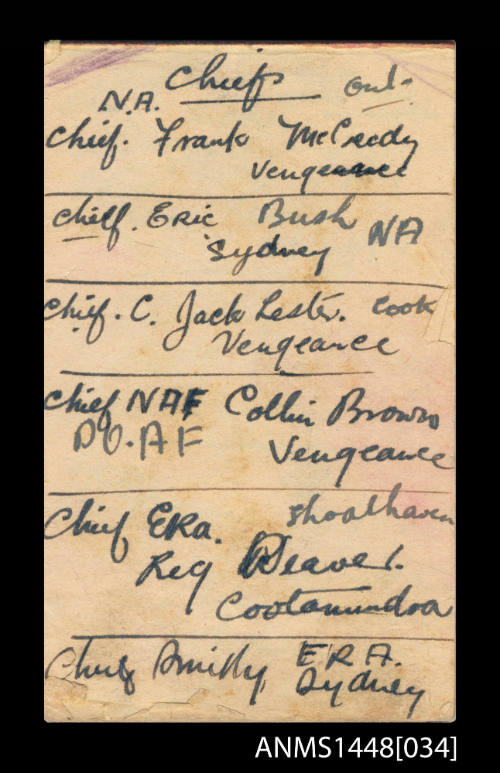 Chiefs out-
N.A.
Chief. Frank McCredy
Vengeance
Chief. Eric Bush NA
Sydney
Chief. C. Jack Lester. Cook
Vengeance
Chief NAF Collin Brown
P.O. A F
Vengeance
Chief ERa. Shoalhaven
Reg Reaver.
Cootamundra
Chief Smithy E R A.
Sydney
ANMS1448[034]